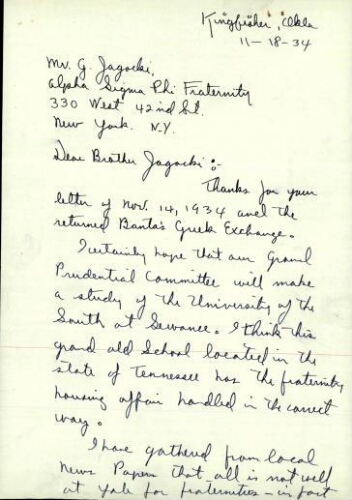 Kingfisher, Okla
11-18-34
Mr. G. Jagocki,
Alpha Sigma Phi Fraternity
330 West 42nd St.
New York. N.Y.
Dear Brother Jagocki:-
Thanks for your
letter of Nov. 14, 1934 and the
returned Banta's Greek Exchange.
I certainly hope that our Grand
Prudential Committee will make
a study of the University of the
South at Sewanee. I think this
grand old School located in the
state of Tennessee has the fraternity
housing affair handled in the correct
way.
I have gathered from local
News Papers that all is not well
at Yale for fraternities - in fact